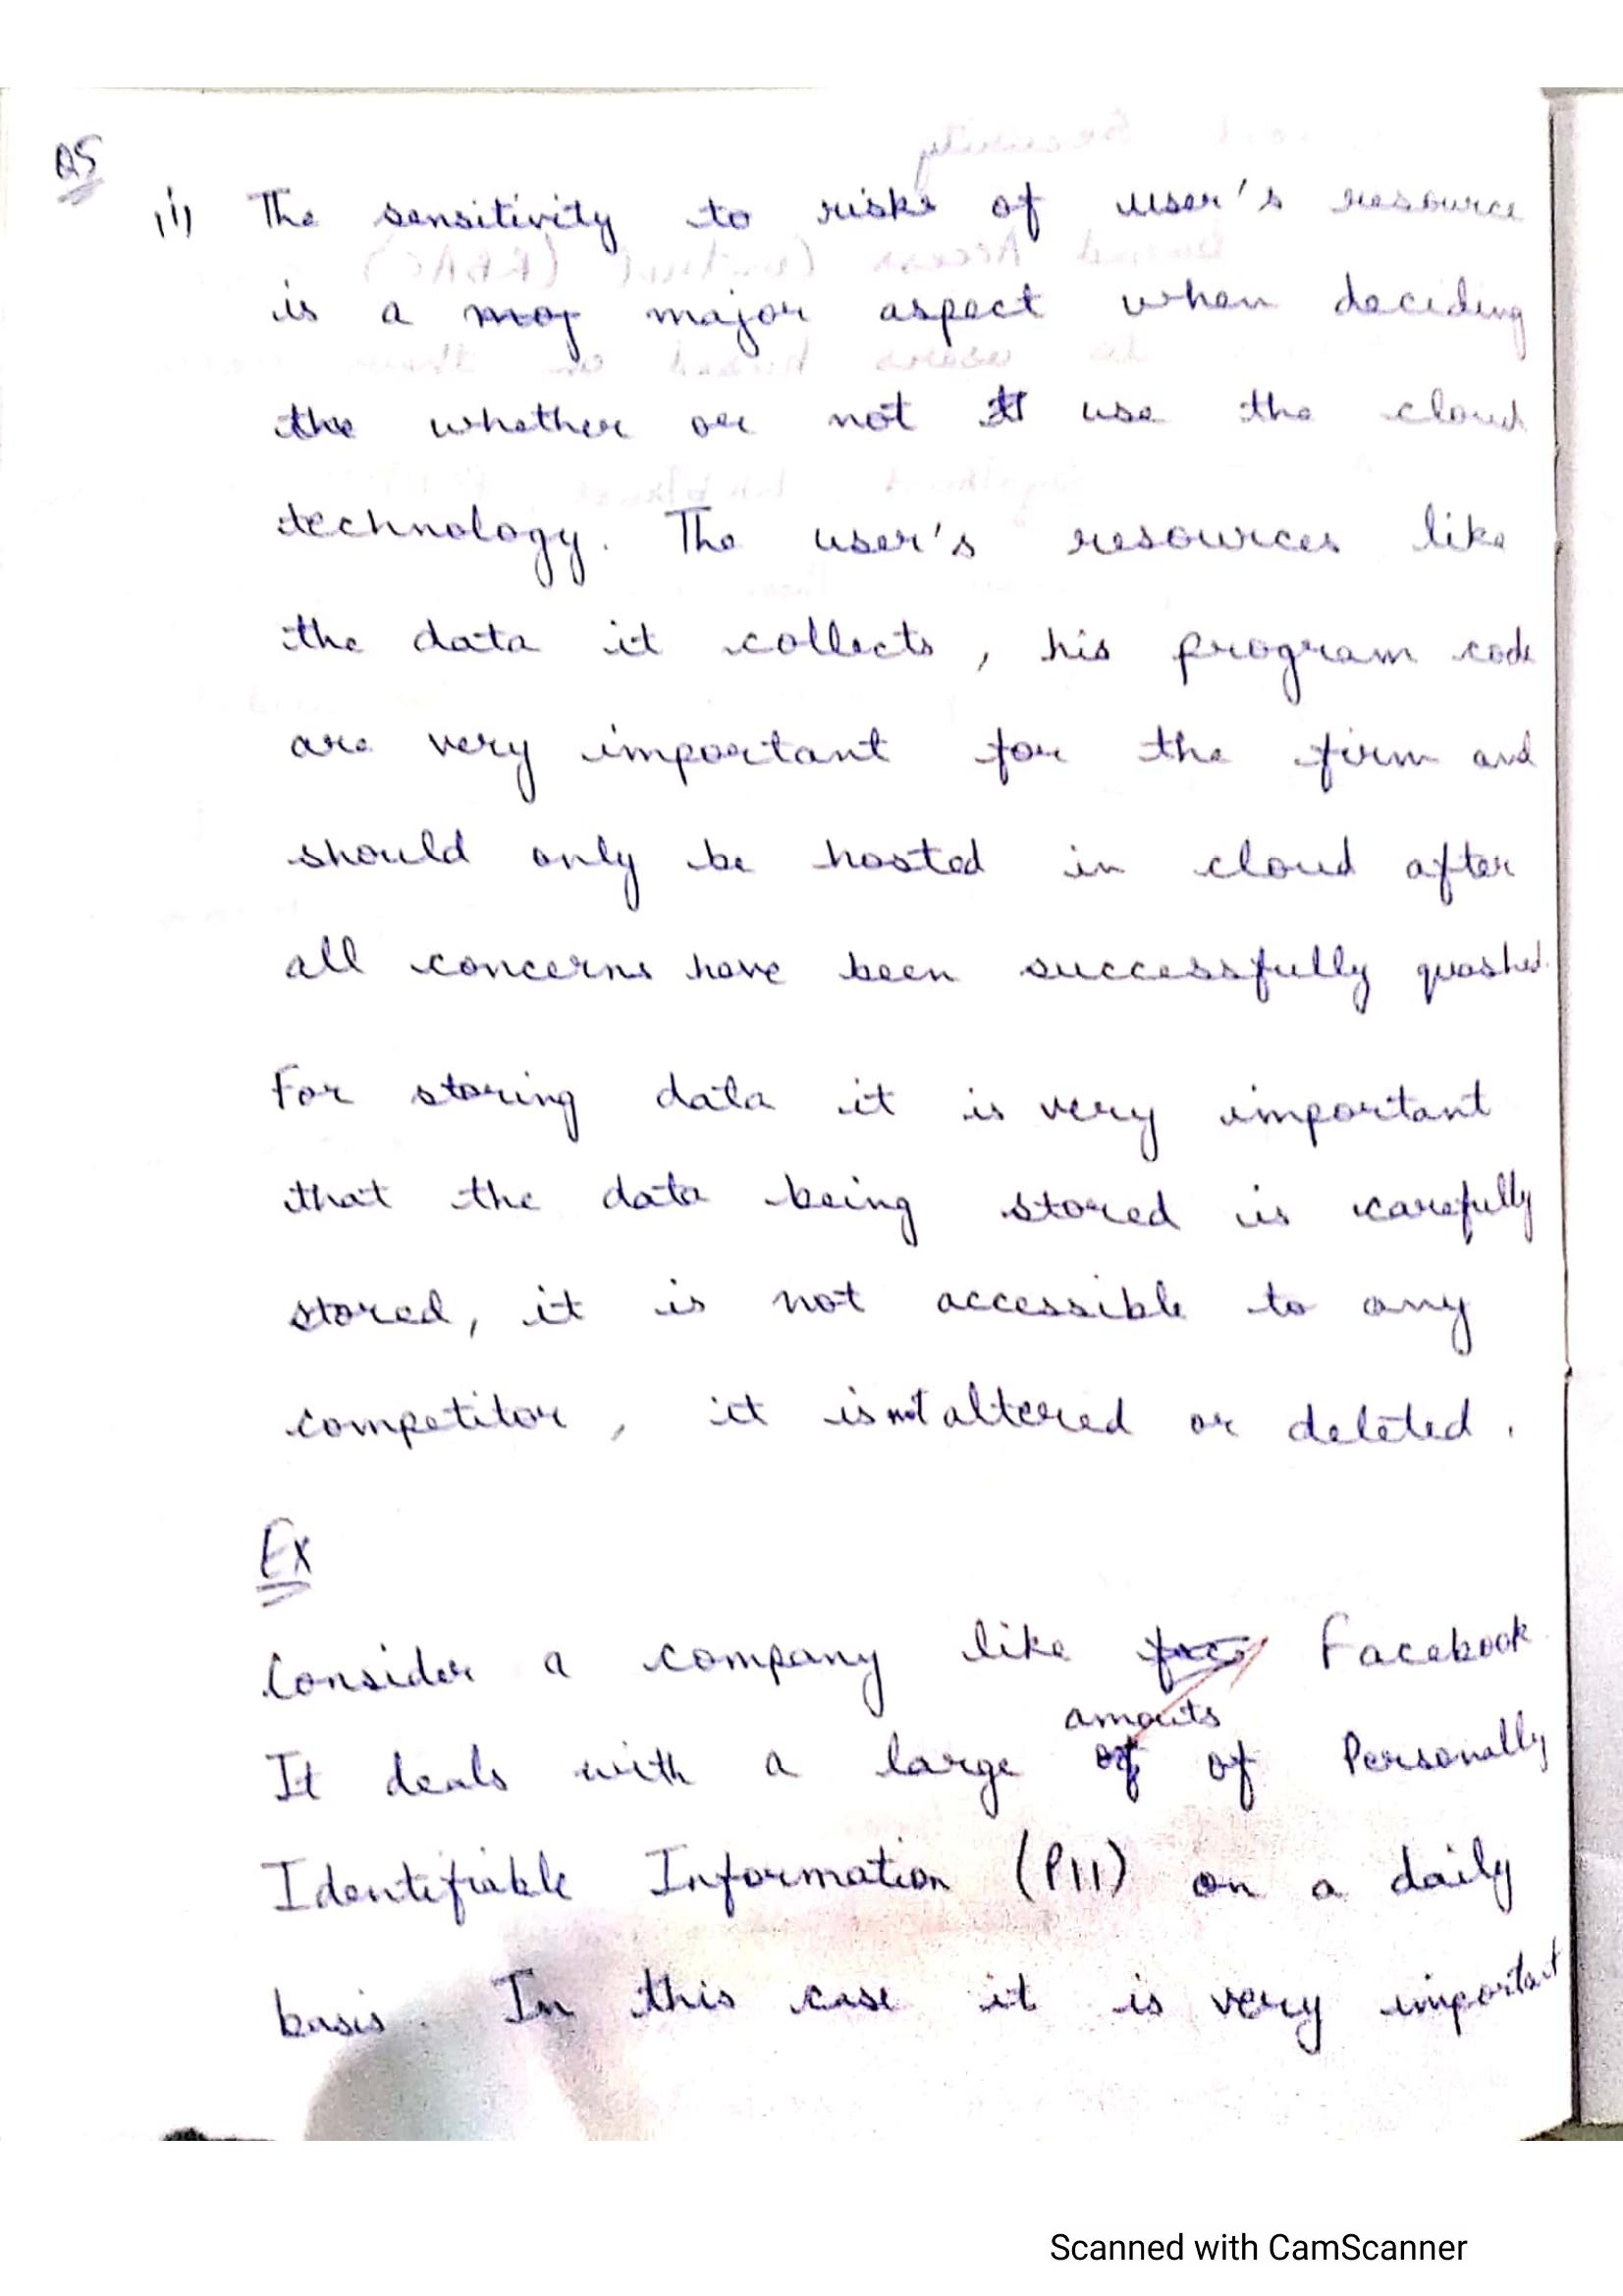 Q5
ii) The sensitivity to risks of user's resource
is a moj major aspect when deciding
the whether or not to use the cloud
technology. The user's resources like
the data it collects, his program code
are very important for the firm and
should only be hosted in cloud after
all concerns have been successfully quashed.
For storing data it is very important
that the data being stored is carefully
stored, it is not accessible to any
competitor, it is not altered or deleted.
Ex
Consider a company like Facebook
amouts
It deals with a large of of Personally
Identifiable Information (PII) on a daily
basis. In this case it is very important
Scanned with CamScanner